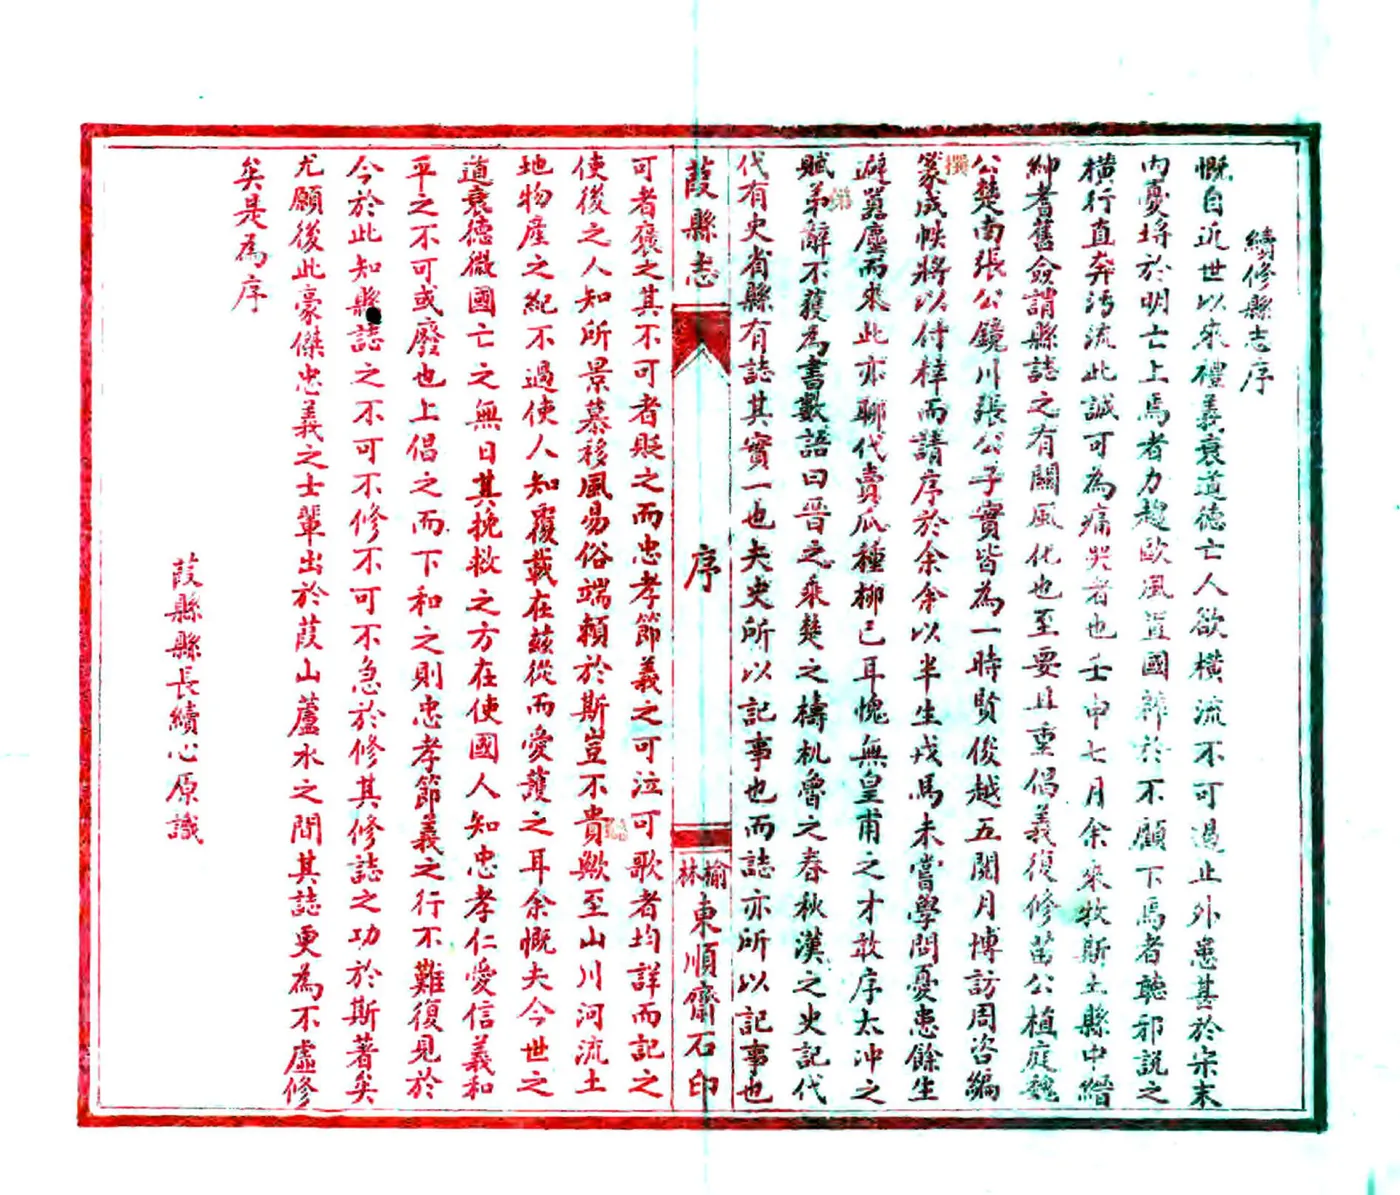 續修縣志序
慨自近世以來禮義衰道德亡人欲橫流不可遏止外患甚於宋末
內憂埒於明亡上焉者力趨歐風置國粹於不顧下焉者聽邪說之
橫行直奔濁流此誠可為痛哭者也壬申七月余來牧斯土縣中縉
紳耆舊僉謂縣誌之有關風化也至要且重倡義復修苗公植庭魏
公楚南張公鏡川張公子實皆為一時賢俊越五閱月博訪周咨編
篆成帙將以付梓而請序於余余以半生戎馬未嘗學問憂患餘生
撰
避囂塵而來此亦聊代賣瓜種柳已耳愧無皇甫之才敢序太冲之
賦弟辭不獲為書數語曰晉之乘楚之檮杌魯之春秋漢之史記代
第
代有史省縣有誌其實一也夫史所以記事也而誌亦所以記事也
葭縣志
序
榆林東順齋石印
可者褒之其不可者貶之而忠孝節義之可泣可歌者均詳而記之
使後之人知所景慕移風易俗端賴於斯豈不貴歟至山川河流土
地物產之紀不過使人知覆載在茲從而愛護之耳余慨夫今世之
道衰德微國亡之無日其挽救之方在使國人知忠孝仁愛信義和
平之不可或廢也上倡之而下和之則忠孝節義之行不難復見於
今於此知縣誌之不可不修不可不急於修其修誌之功於斯著矣
尤願後此豪傑忠義之士輩出於葭山蘆水之間其誌更為不虛修
矣是為序
葭縣縣長續心原識